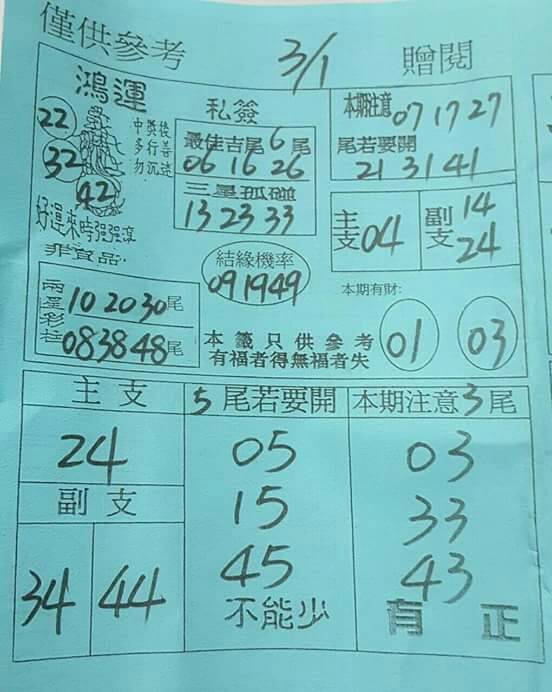 僅供參考 3/1 贈閱
鴻運
22
32
42
中獎後
多行善
勿沉迷
好運來時強強滾
非賣品
私簽
最佳吉尾6尾
06 16 26
三星孤碰
13 23 33
本期注意 07 17 27
尾若要開
21 31 41
主支 04
副支 14 24
結緣機率
09 19 49
本期有財:
01 03
兩星彩柱
10 20 30尾
08 38 48尾
本籤只供參考
有福者得無福者失
主支
24
副支
34 44
5尾若要開
05
15
45
不能少
本期注意3尾
03
33
43
有正